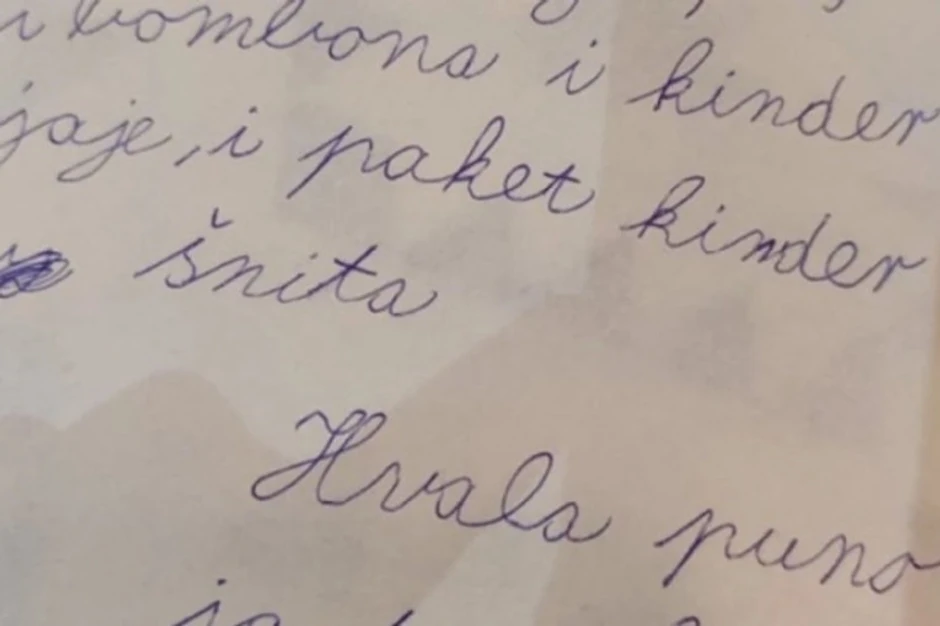 i bombona i kinder
jaje, i paket kinder
šnita
Hvala puno